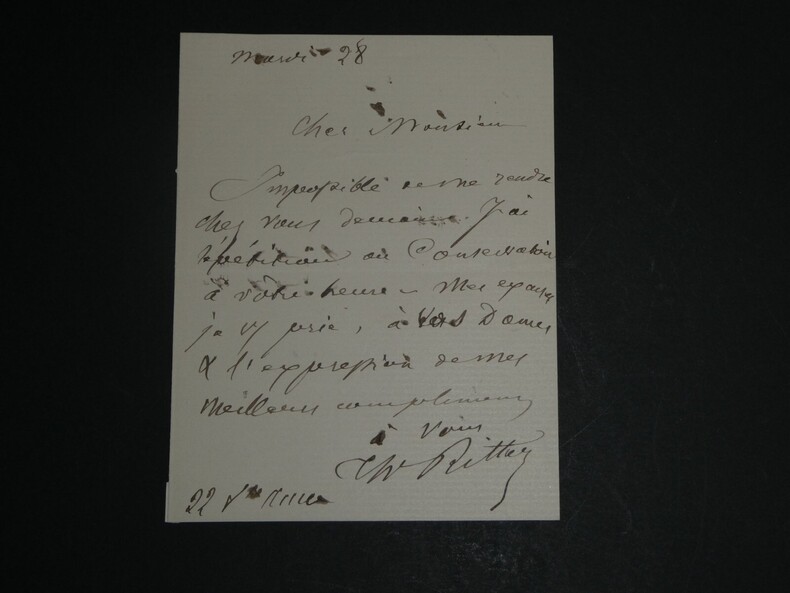 Mardi 28
Cher Monsieur
Impossible de me rendre
chez vous demain. J'ai
répétition au Conservatoire
à votre heure – Mes excuses
je vs prie, à vos Dames
& l'expression de mes
meilleurs compliments
à vous
Th Ritter
22